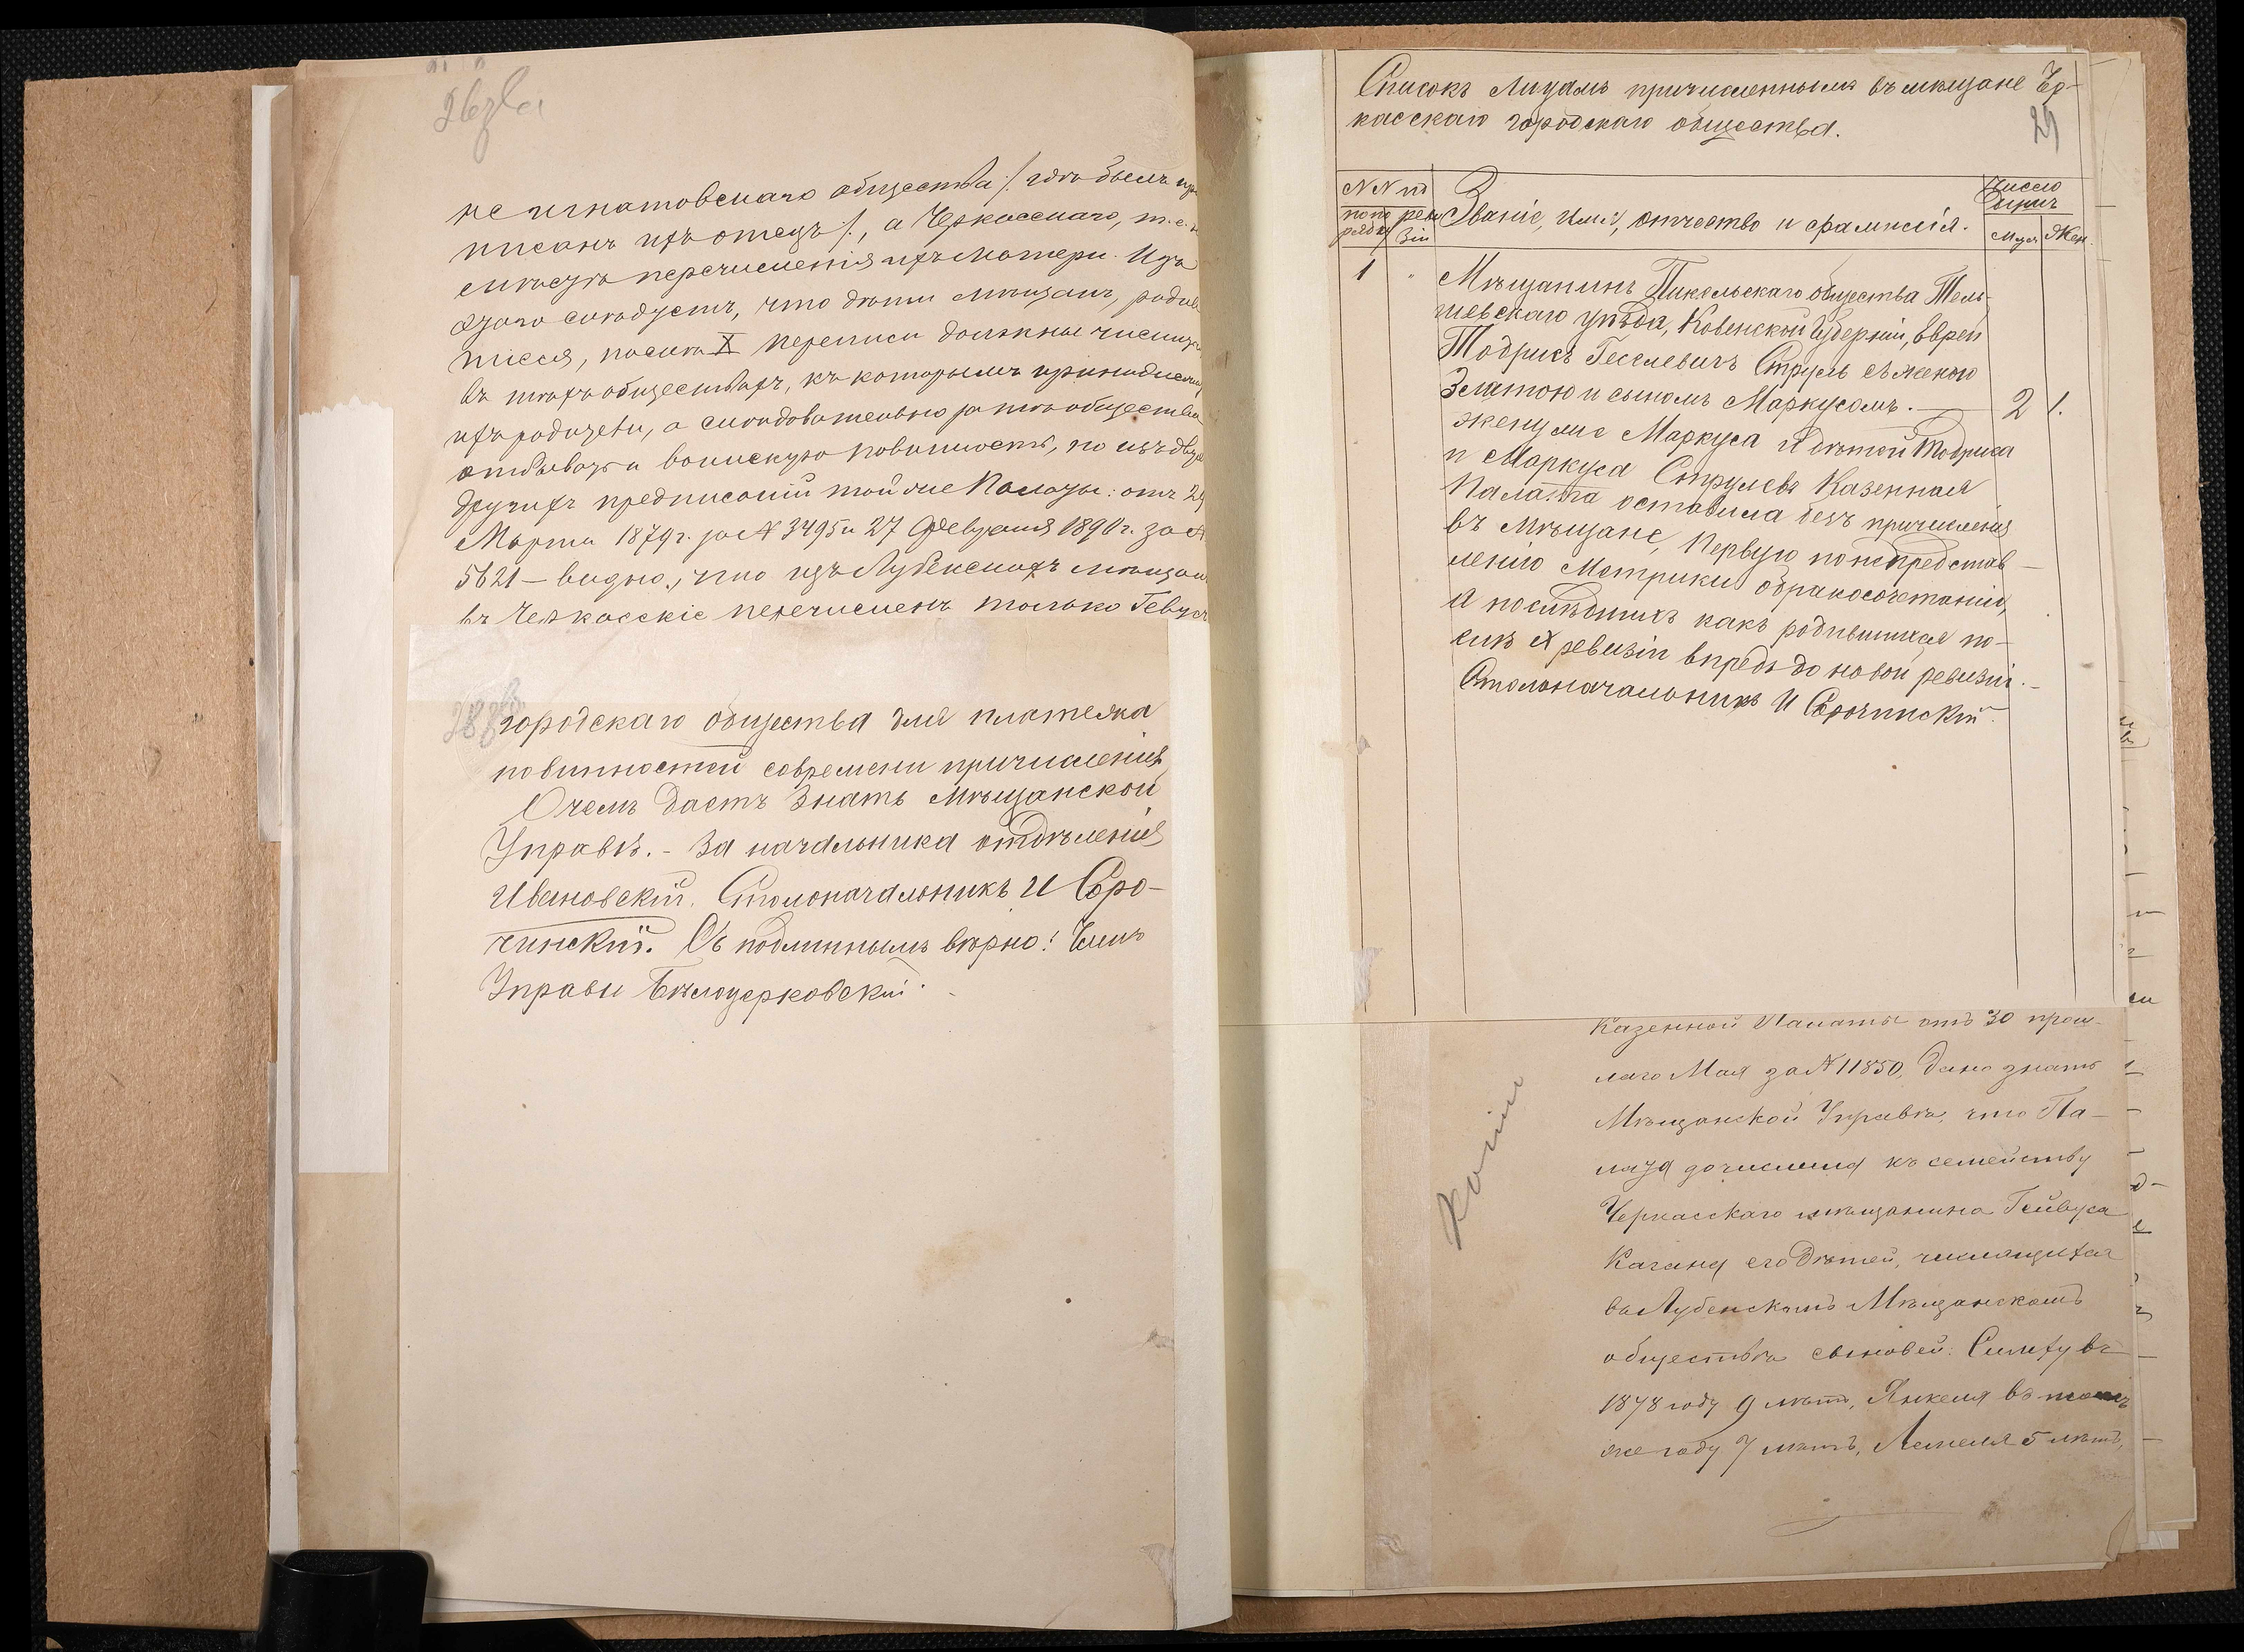 26зва
не игнатовскаго общества /. гдѣ былъ при
писанъ ихъ отецъ /., а Черкасскаго, т. е.
мѣсту перечисленія ихъ матери. Изъ
этого слѣдуетъ, что дѣти мѣщанъ, родив
шіеся, послѣ X переписи должны числиться
въ тѣхъ обществахъ, къ которымъ принадлежатъ
ихъ родители, а слѣдовательно за тѣ общества
отбывать и воинскую повинность, но изъ двухъ
другихъ предписаній той же Палаты: отъ 29
Марта 1879 г. за № 3495 и 27 Февраля 1890 г. за №
5621 – видно, что изъ Лубенскихъ мѣщанъ
въ Черкасскіе перечисленъ только Гевусъ
городскаго общества для платежа
повинностей современи причисленія,
О чемъ даетъ знать Мѣщанской
Управѣ. – За начальника отдѣленія
Ивановскій. Столоначальникъ И Соро-
чинскій. Съ подлиннымъ вѣрно: Членъ
Управы Бѣлоцерковскій.
Списокъ Лицамъ причисленнымъ въ мѣщане Чер-
касскаго городскаго общества.
29
№ № по
по по
рядку
реви
зіи
Званіе, имя, отчество и фамилія.
Число
душъ
Муж.
Жен.
1 " Мѣщанинъ Пикельскаго общества Тель-
шевскаго уѣзда, Ковенской Губерніи, еврей
Тодрисъ Геселевичъ Струль съ женою
Златою и сыномъ Маркусомъ. — 2 1.
жену же Маркуса и дѣтей Тодриса
и Маркуса Струлевъ Казенная
Палата оставила безъ причисленія
въ мѣщане, Первую по непредстав-
ленію Метрики о бракосочетаніи,
а послѣднихъ какъ родившихся по-
слѣ X ревизіи впредь до новой ревизіи. –
Столоначальникъ И Сорочинскій.
Казенной Палаты отъ 30 прош-
лаго Мая за № 11850, дано знать
Мѣщанской Управѣ, что Па-
лата дочислила къ семейству
Черкасскаго мѣщанина Гейвуса
Кагана его дѣтей, числящихся
въ Лубенскомъ Мѣщанскомъ
обществѣ сыновей: Симху въ
1878 году 9 лѣтъ, Янкеля въ томъ
же году 7 лѣтъ, Лемеля 5 лѣтъ,
Копіи